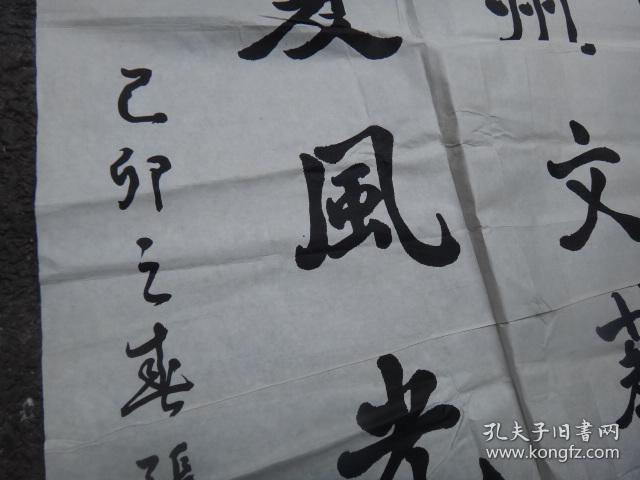 州
文
夏風光
己卯之春張
孔夫子旧书网
www.kongfz.com